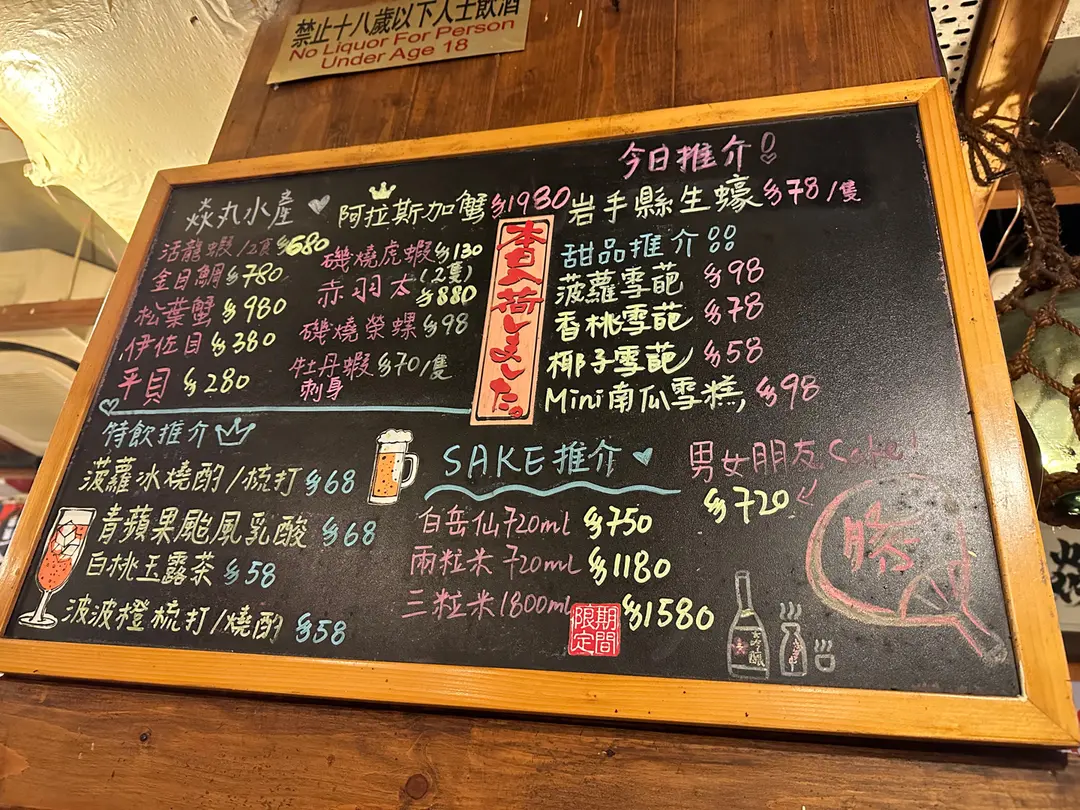 禁止十八歲以下人士飲酒
No Liquor For Person
Under Age 18
今日推介!
焱丸水産
阿拉斯加蟹 $1980
岩手縣生蠔 $78/隻
活龍蝦/2食 $680
金目鯛 $780
松葉蟹 $980
伊佐目 $380
平貝 $280
磯燒虎蝦 $130
(2隻)
赤羽太 $880
磯燒榮螺 $98
牡丹蝦 $70/隻
刺身
本日入荷しました。
甜品推介
菠蘿雪葩 $98
香桃雪葩 $78
椰子雪葩 $58
Mini南瓜雪糕 $98
特飲推介
菠蘿冰燒酌/梳打 $68
青蘋果颱風乳酸 $68
白桃玉露茶 $58
波波橙梳打/燒酌 $58
SAKE推介
白岳仙720ml $750
兩粒米 720ml $1180
三粒米1800ml $1580
期間
限定
男女朋友Sake!
$720
勝
大吟釀